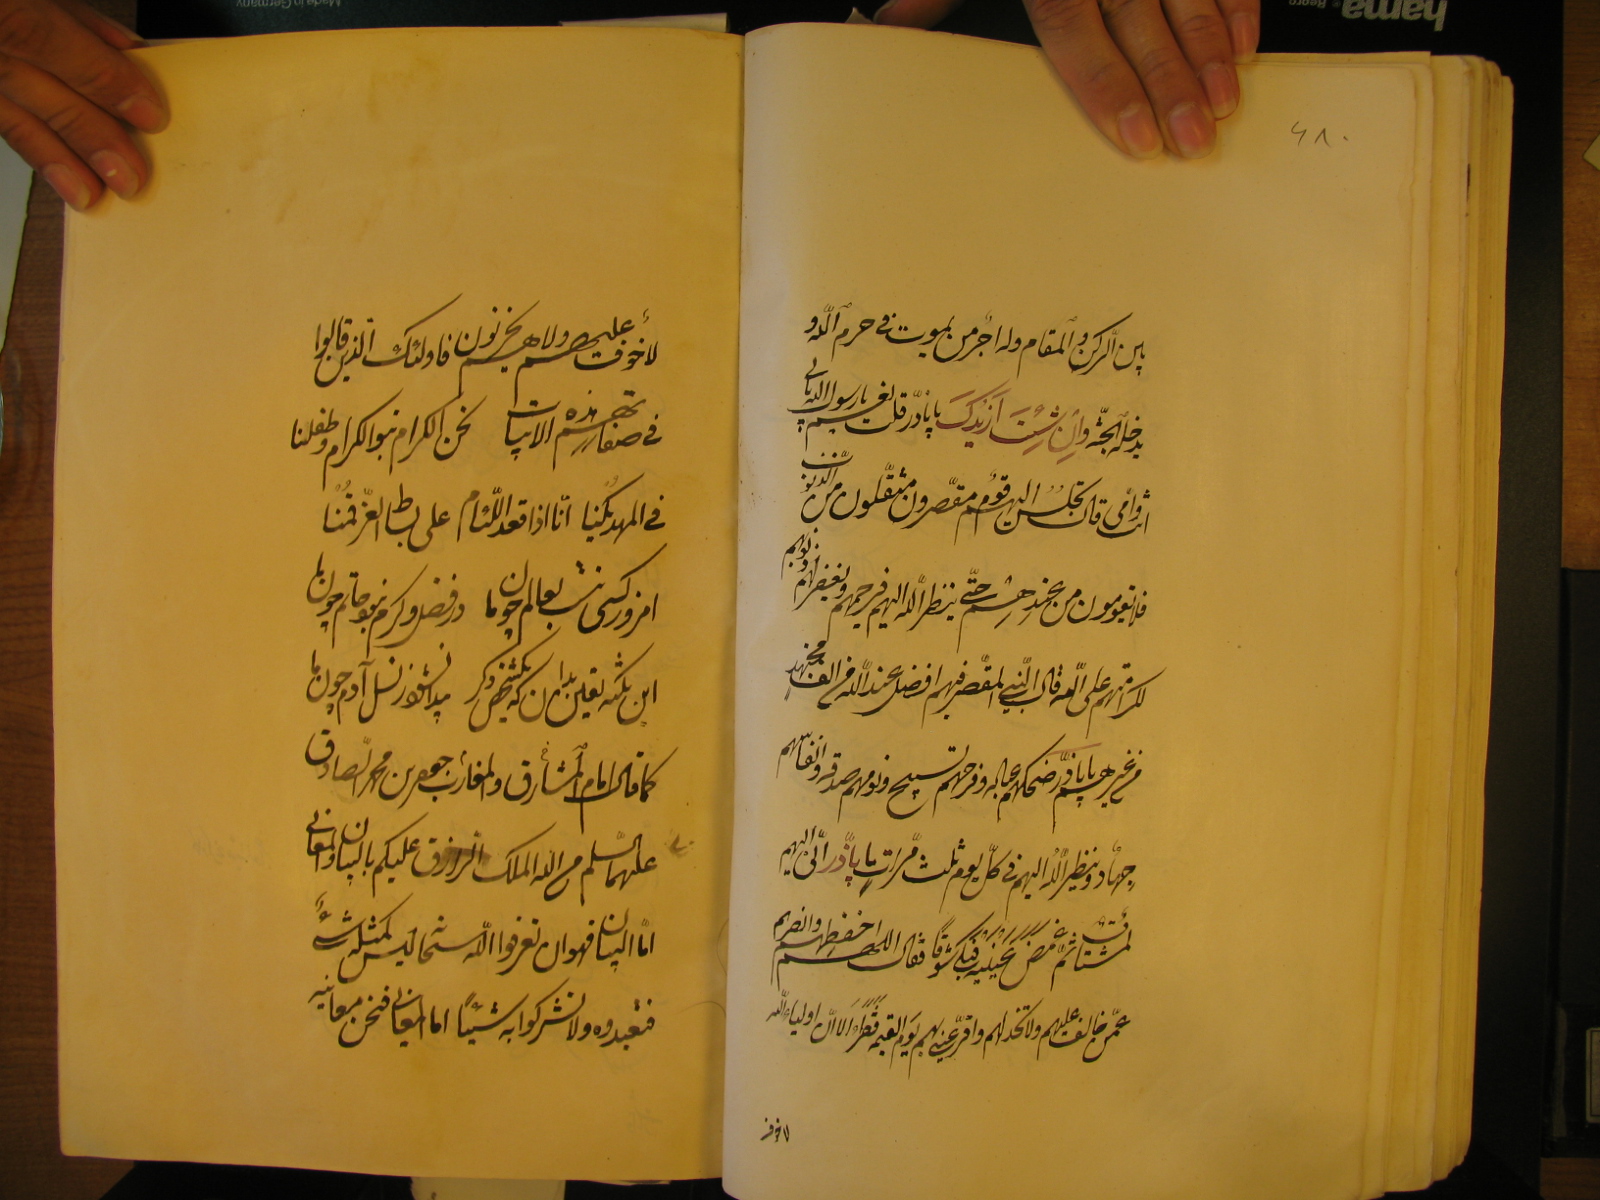 ۶۸۰
بين الركن و المقام وله اجر من يموت فى حرم الله و
يدخله الجنّة وان شئت ازيدك يا باذر قلت نعم يا رسول الله بابى
انت وامى قال يجلس اليهم قوم مقصرون مثقلون من الذنوب
فلا يقومون من عندهم حتّى ينظر الله اليهم فيرحمهم ويغفر لهم ذنوبهم
لكرامتهم على الله قال النبى المقصر فيهم افضل عند الله من الف مجتهد
من غيرهم يا باذر ضحكهم عبادة وفرحهم تسبيح ونومهم صدقة وانفاسهم
جهاد وينظر الله اليهم فى كل يوم ثلث مرّات يا باذر انّى اليهم
لمشتاق ثم غمض عينيه فبكى شوقاً فقال اللهم احفظهم وانصرهم
عمّن خالف عليهم ولا تخذلهم واقرّ عينى بهم يوم القيمة فقرأ الا انّ اولياء الله
لا خوف
لا خوف عليهم ولاهم يحزنون فاولئك الذين قالوا
فى صفاتهم هذه الابيات نحن الكرام بنو الكرام وطفلنا
فى المهد يكنيا انّا اذا قعد اللئام على بساط العزّ قمنا
امروز كسى نيست بعالم چون ما در فضل وكرم نبود حاتم چون ما
اين نكته يقين بدان كه يكشخص ذكر پيدا نشود ز نسل آدم چون ما
كما قال امام المشارق والمغارب جعفر بن محمّد الصّادق
عليهما السّلم من الله الملك الرازق عليكم بالبيان والمعانى
امّا البيان فهو ان تعرفوا الله سبحانه ليس كمثله شئ
فتعبدوه ولا تشركوا به شيئاً اما المعانى فنحن معانيه